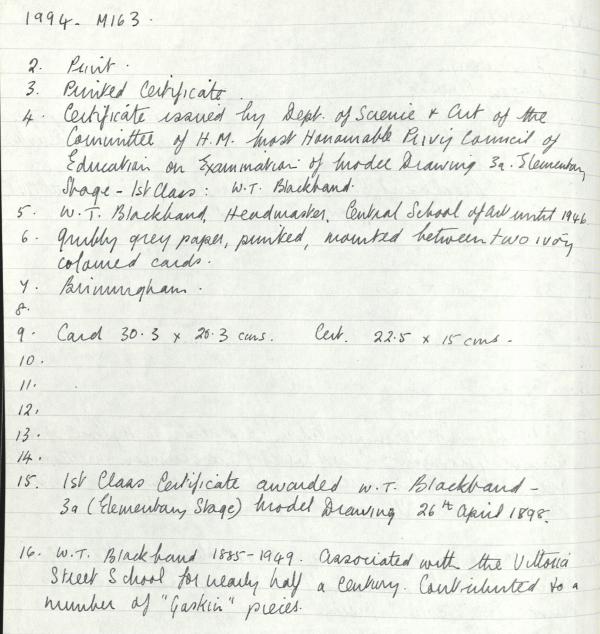 1994- M163.
2. Print.
3. Printed Certificate.
4. Certificate issued by Dept. of Science & Art of the
Committee of H.M. Most Honourable Privy Council of
Education on Examination of Model Drawing 3a. Elementary
Stage - 1st Class: W.T. Blackband.
5. W.T. Blackband, Headmaster, Central School of Art until 1946.
6. Grubby grey paper, printed, mounted between two ivory
coloured cards.
7. Birmingham.
8.
9. Card 30.3 x 20.3 cms. Cert. 22.5 x 15 cms.
10.
11.
12.
13.
14.
15. 1st Class Certificate awarded W.T. Blackband -
3a (Elementary Stage) Model Drawing 26th April 1898.
16. W.T. Blackband 1885-1949. Associated with the Vittoria
Street School for nearly half a century. Contributed to a
number of "Gaskin" pieces.